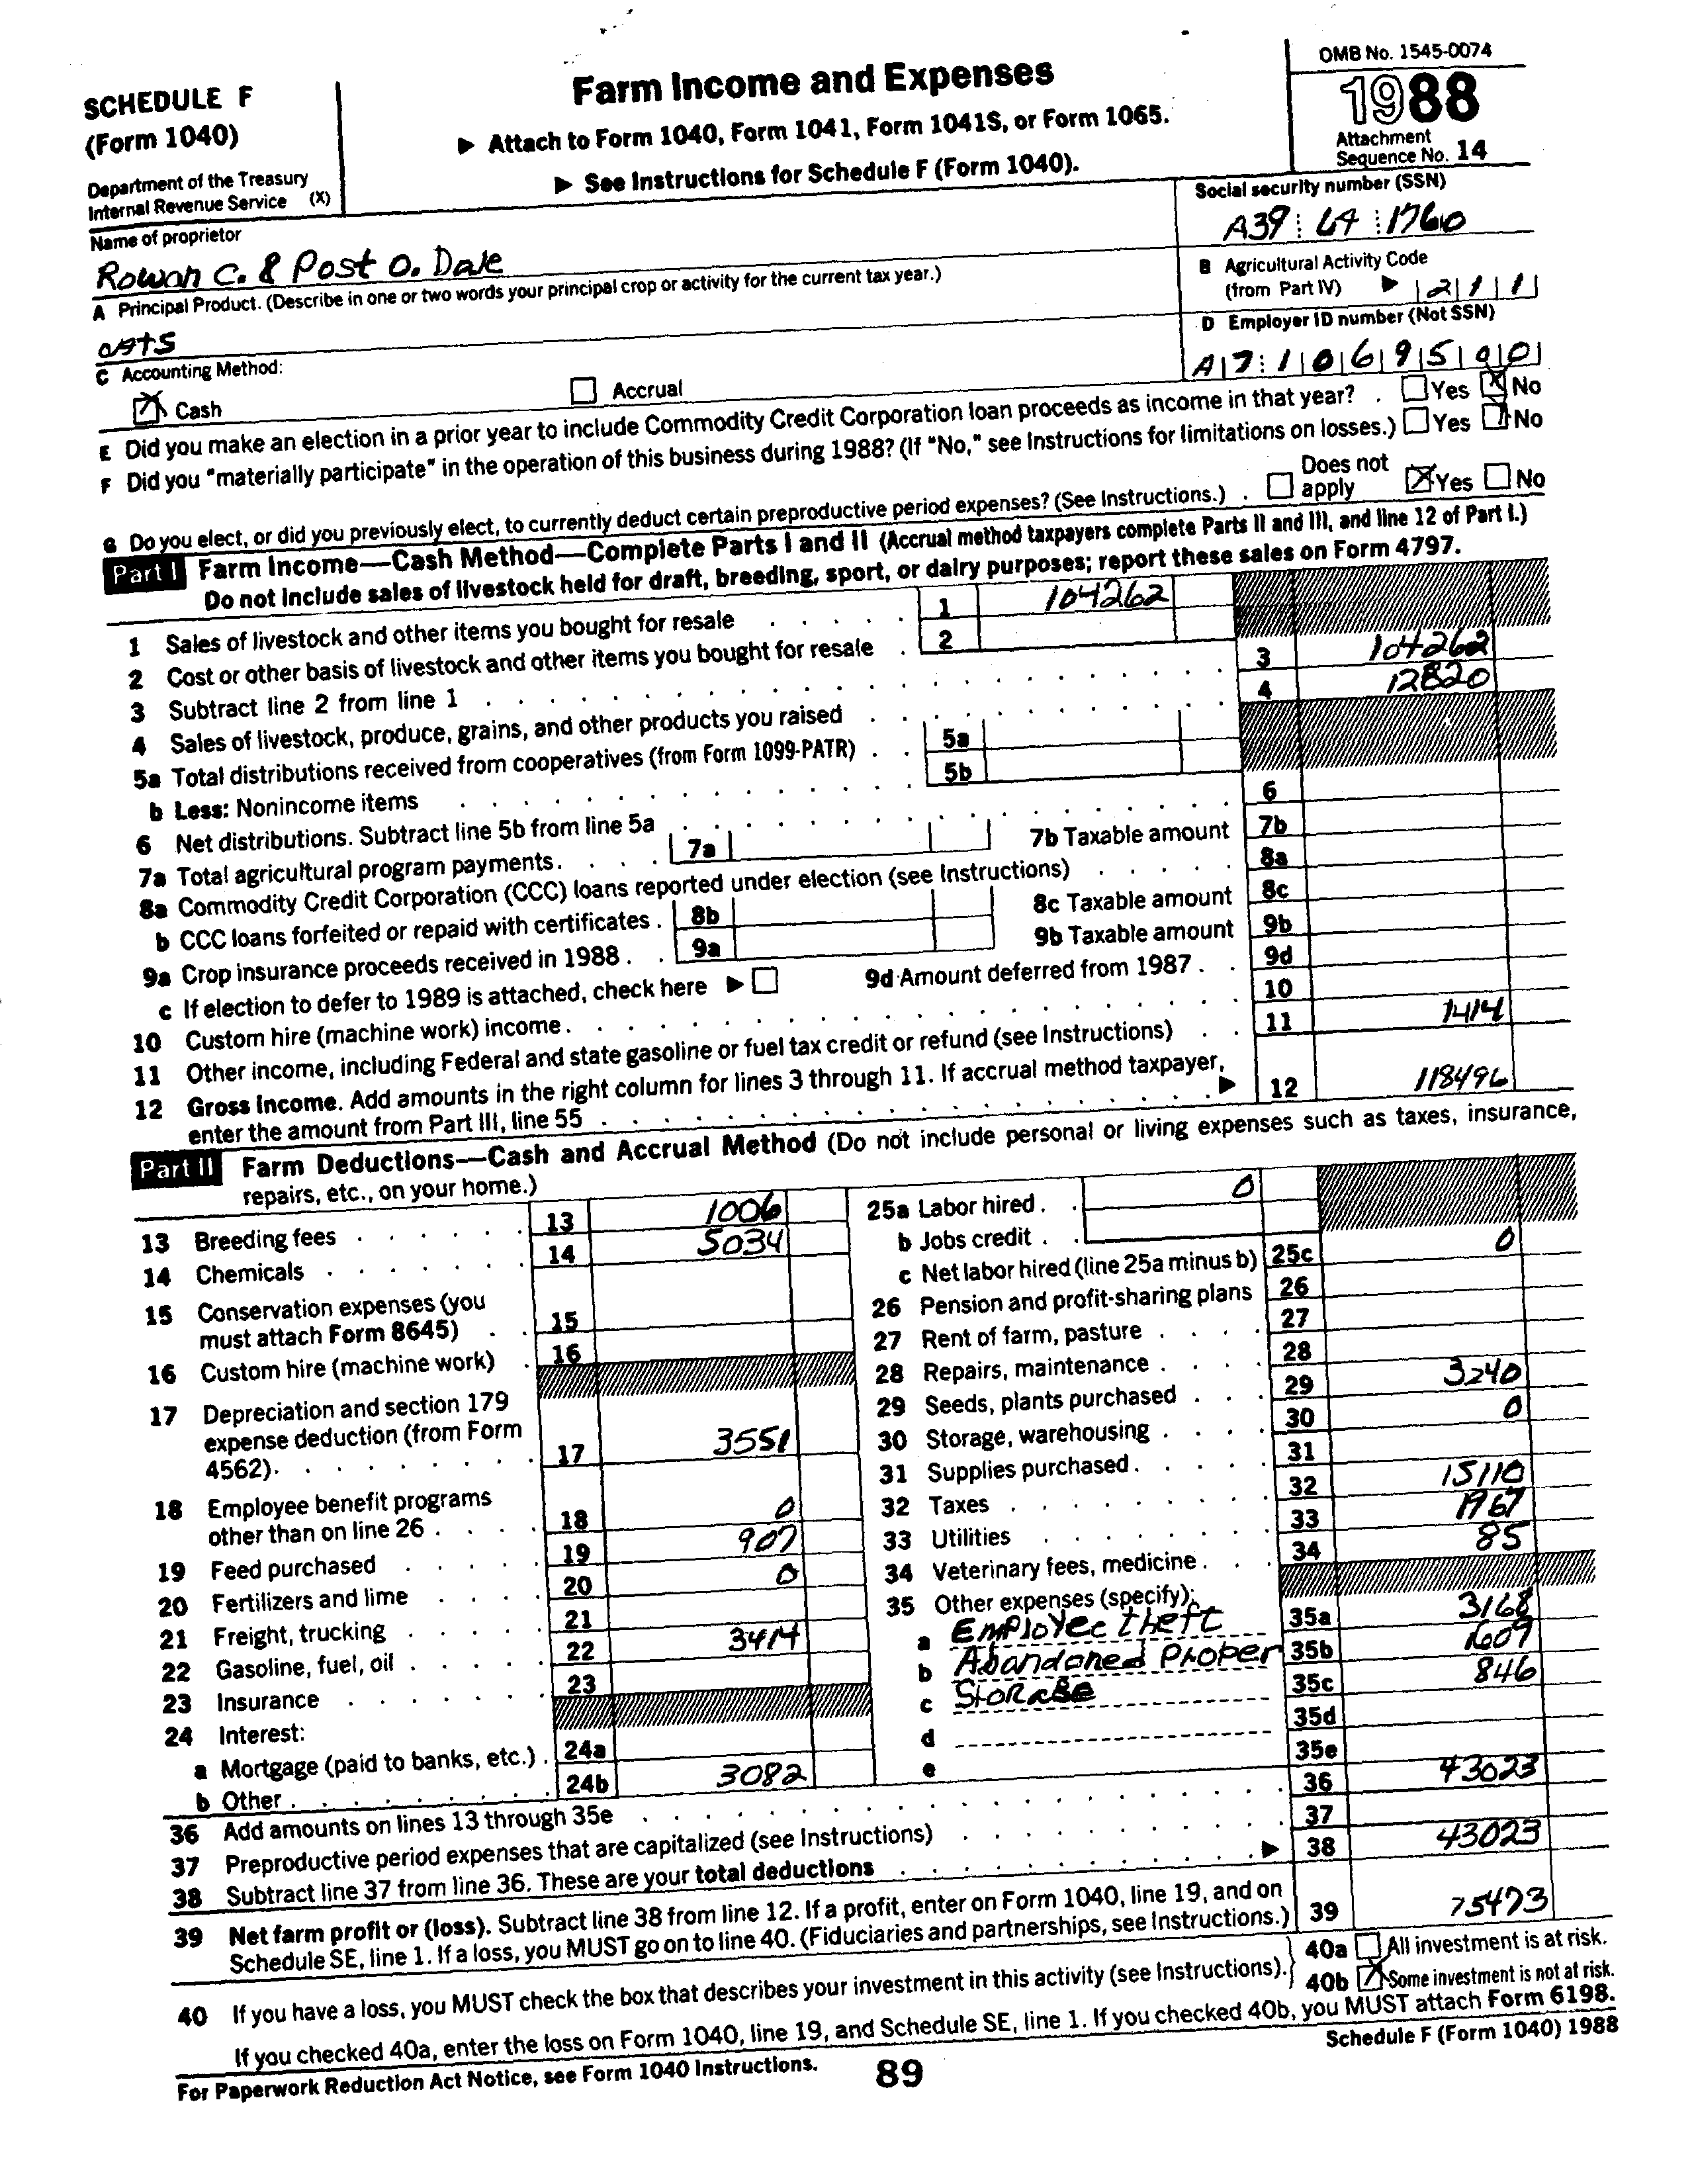 SCHEDULE F
(Form 1040)
Department of the Treasury
Internal Revenue Service (X)
Farm Income and Expenses
▶ Attach to Form 1040, Form 1041, Form 1041S, or Form 1065.
▶ See Instructions for Schedule F (Form 1040).
OMB No. 1545-0074
1988
Attachment
Sequence No. 14
Name of proprietor
Rowan C. & Post O. Dale
Social security number (SSN)
A39 64 1760
A Principal Product. (Describe in one or two words your principal crop or activity for the current tax year.)
oats
B Agricultural Activity Code
(from Part IV) ▶ 211
D Employer ID number (Not SSN)
A7 1069500
C Accounting Method:
Cash Accrual
E Did you make an election in a prior year to include Commodity Credit Corporation loan proceeds as income in that year? . Yes No
F Did you "materially participate" in the operation of this business during 1988? (If "No," see Instructions for limitations on losses.) Yes No
G Do you elect, or did you previously elect, to currently deduct certain preproductive period expenses? (See Instructions.) . Does not apply Yes No
Part I Farm Income—Cash Method—Complete Parts I and II (Accrual method taxpayers complete Parts II and III, and line 12 of Part I.)
Do not include sales of livestock held for draft, breeding, sport, or dairy purposes; report these sales on Form 4797.
1 Sales of livestock and other items you bought for resale 1 104262
2 Cost or other basis of livestock and other items you bought for resale 2
3 Subtract line 2 from line 1 3 104262
4 Sales of livestock, produce, grains, and other products you raised 4 12820
5a Total distributions received from cooperatives (from Form 1099-PATR) 5a
b Less: Nonincome items 5b
6 Net distributions. Subtract line 5b from line 5a 6
7a Total agricultural program payments. 7a 7b Taxable amount 7b
8a Commodity Credit Corporation (CCC) loans reported under election (see Instructions) 8a
b CCC loans forfeited or repaid with certificates . 8b 8c Taxable amount 8c
9a Crop insurance proceeds received in 1988 . 9a 9b Taxable amount 9b
c If election to defer to 1989 is attached, check here ▶ 9d Amount deferred from 1987 . 9d
10 Custom hire (machine work) income. 10
11 Other income, including Federal and state gasoline or fuel tax credit or refund (see Instructions) 11 1414
12 Gross income. Add amounts in the right column for lines 3 through 11. If accrual method taxpayer,
enter the amount from Part III, line 55 ▶ 12 118496
Part II Farm Deductions—Cash and Accrual Method (Do not include personal or living expenses such as taxes, insurance,
repairs, etc., on your home.)
13 Breeding fees 13 1006
14 Chemicals 14 5034
15 Conservation expenses (you
must attach Form 8645) 15
16 Custom hire (machine work) 16
17 Depreciation and section 179
expense deduction (from Form
4562). 17 3551
18 Employee benefit programs
other than on line 26 18 0
19 Feed purchased 19 907
20 Fertilizers and lime 20 0
21 Freight, trucking 21
22 Gasoline, fuel, oil 22 3414
23 Insurance 23
24 Interest:
a Mortgage (paid to banks, etc.) . 24a
b Other 24b 3082
25a Labor hired . 0
b Jobs credit .
c Net labor hired (line 25a minus b) 25c 0
26 Pension and profit-sharing plans 26
27 Rent of farm, pasture 27
28 Repairs, maintenance 28
29 Seeds, plants purchased 29 3240
30 Storage, warehousing 30 0
31 Supplies purchased. 31
32 Taxes 32 15110
33 Utilities 33 1967
34 Veterinary fees, medicine . 34 85
35 Other expenses (specify):
a Employee theft 35a 3168
b Abandoned Proper 35b 1609
c Storage 35c 846
d 35d
e 35e
36 Add amounts on lines 13 through 35e 36 43023
37 Preproductive period expenses that are capitalized (see Instructions) 37
38 Subtract line 37 from line 36. These are your total deductions ▶ 38 43023
39 Net farm profit or (loss). Subtract line 38 from line 12. If a profit, enter on Form 1040, line 19, and on
Schedule SE, line 1. If a loss, you MUST go on to line 40. (Fiduciaries and partnerships, see Instructions.) 39 75473
40 If you have a loss, you MUST check the box that describes your investment in this activity (see Instructions).
40a All investment is at risk.
40b Some investment is not at risk.
If you checked 40a, enter the loss on Form 1040, line 19, and Schedule SE, line 1. If you checked 40b, you MUST attach Form 6198.
For Paperwork Reduction Act Notice, see Form 1040 Instructions. 89 Schedule F (Form 1040) 1988